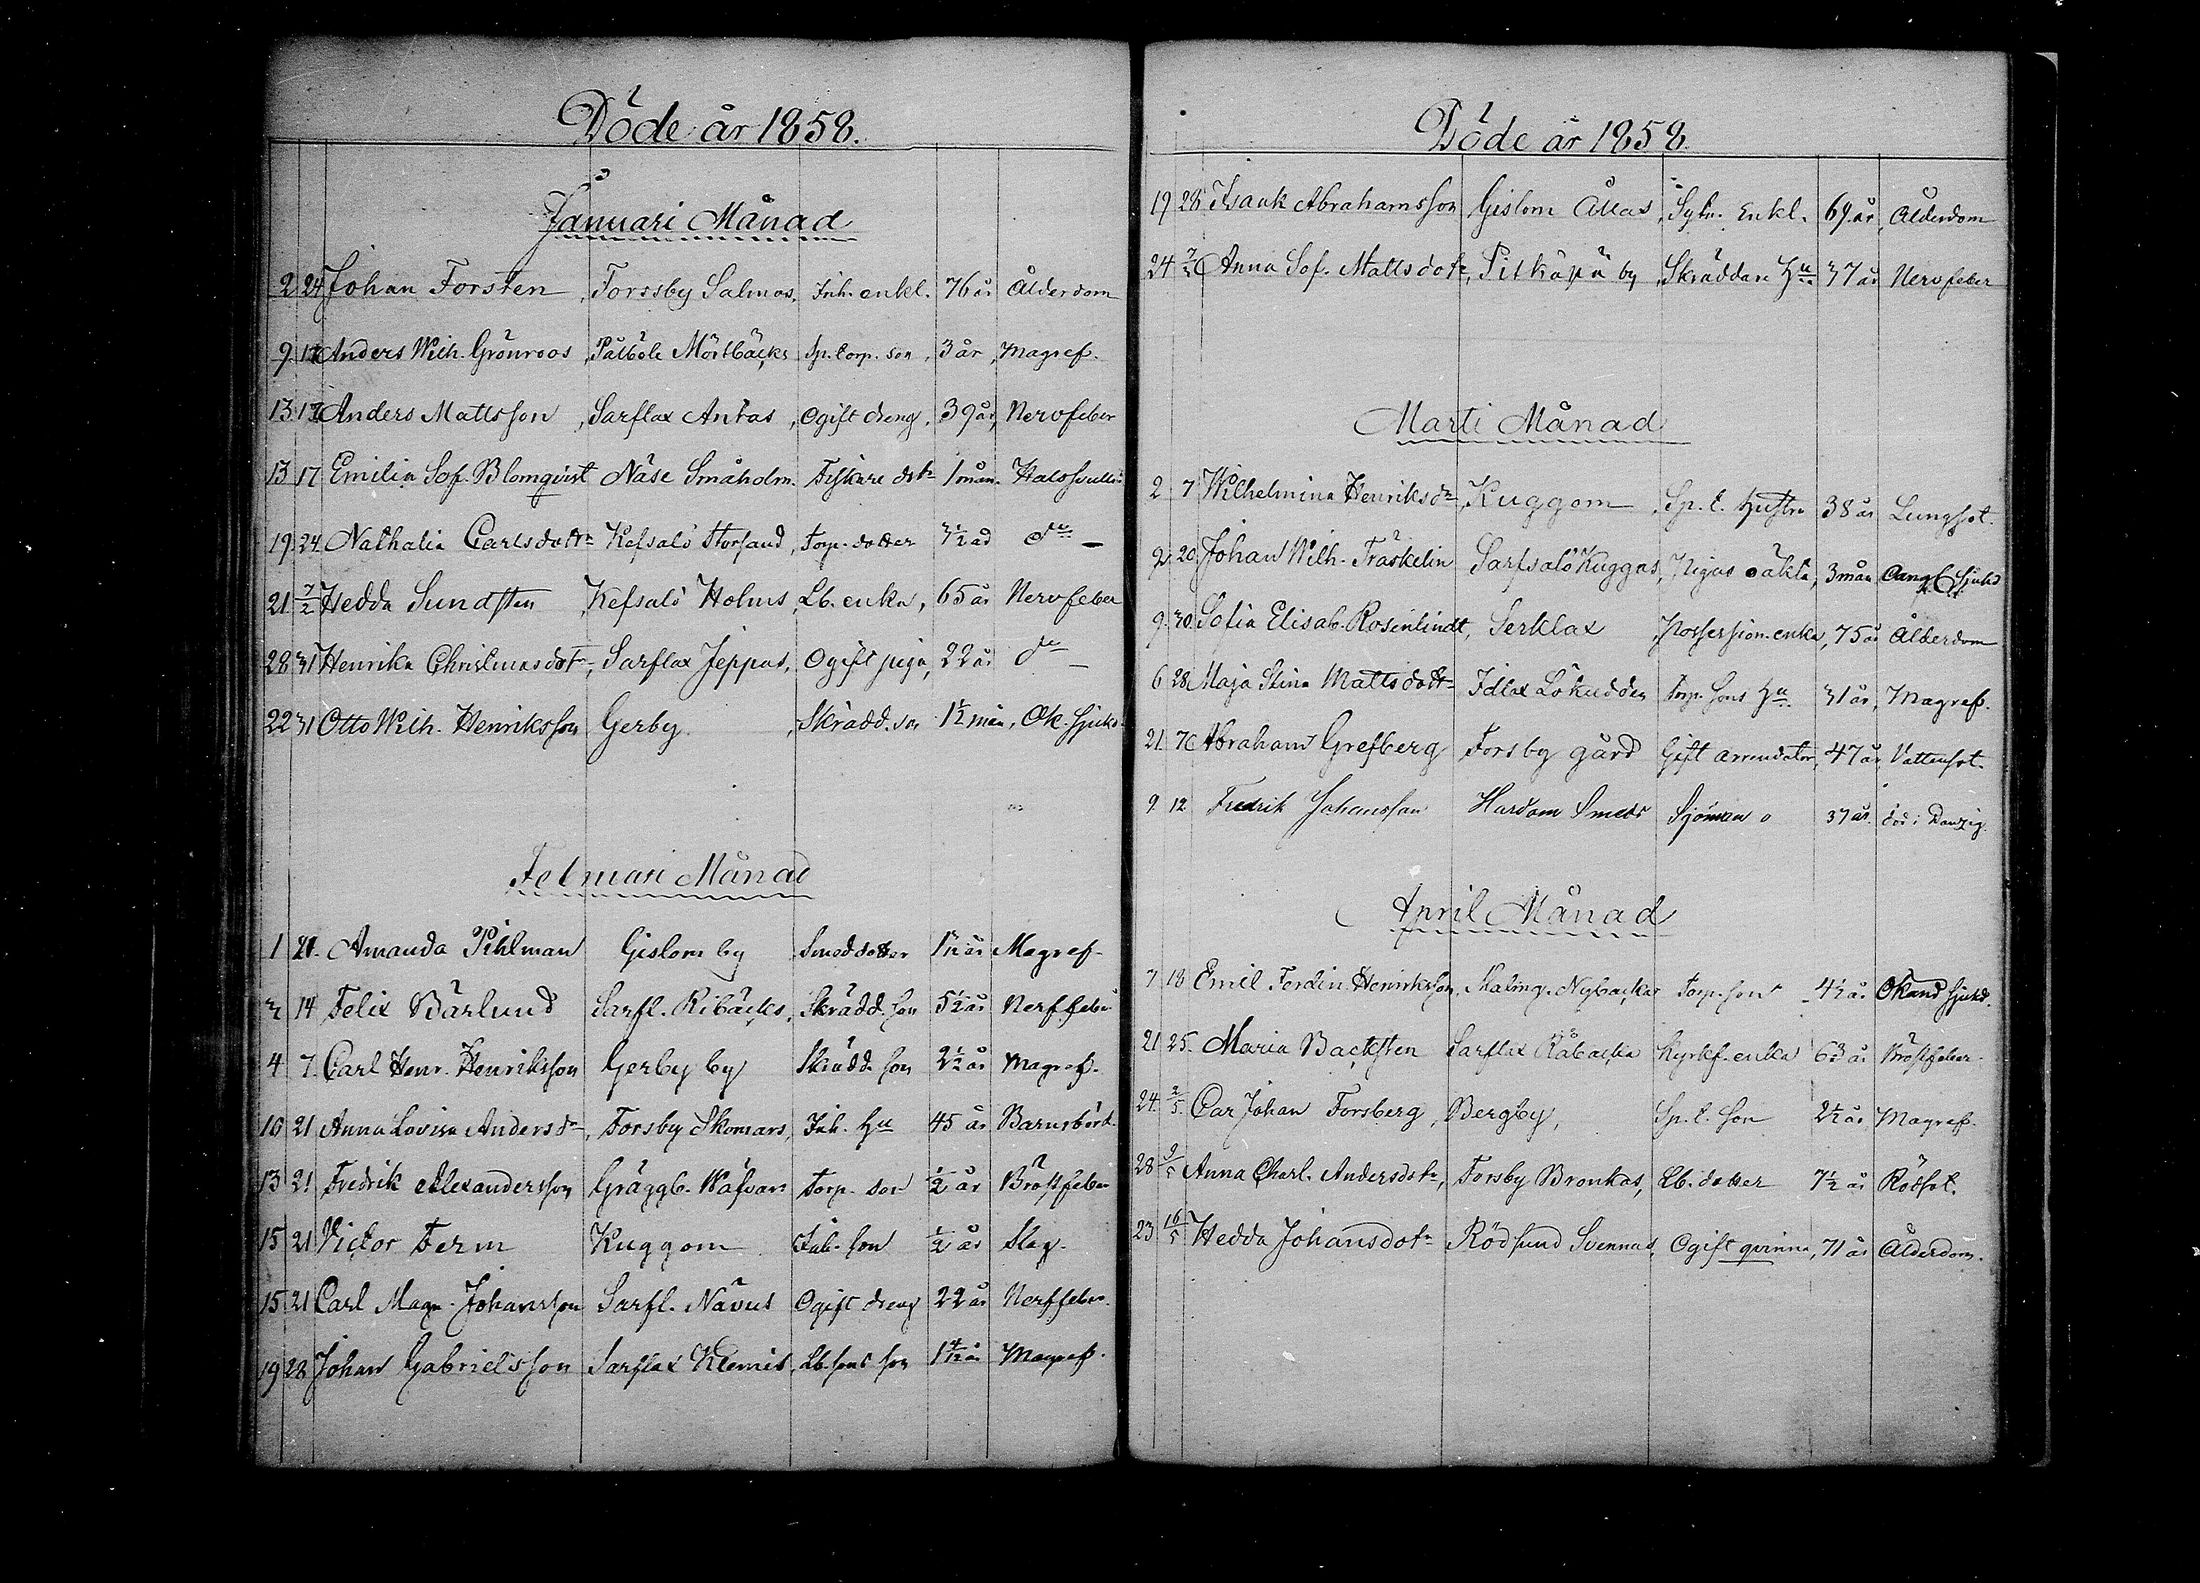 Döde år 1858.
Januari Månad
2 24 Johan Forsten, Forssby Salmas, Inh. enkl. 76 år Ålderdom
9 17 Anders Wilh. Grönroos, Pålböle Mörtbäcks Sp. torp. son, 3 år, Magref.
13 17 Anders Mattsson, Sarflax Antas, Ogift dreng, 39 år, Nervfeber
13 17 Emilia Sof. Blomqvist Näse Småholm. Fiskare dotr 1 mån.
19 24 Nathalia Carlsdottr Kefsalö Storsand, Torp. dotter 3½ år do —
21 7/2 Hedda Sundsten, Kefsalö Holms, Lb. enka, 65 år Nervfeber
28 31 Henrika Christinasdotr, Sarflax Jeppas, Ogift piga, 22 år do —
22 31 Otto Wilh. Henriksson Gerby, Skrädd. son 1½ mån, Ok. sjukd.
Februari Månad
1 21. Amanda Pihlman Gislom by Smed dotter Magref.
3 14 Felix Bärlund Sarfl. Ribäcks, Skrädd. son 5½ år Nerffeber
4 7. Carl Henr. Henriksson Gerby by Skrädd son 2½ år Magref.
10 21 Anna Lovisa Andersdr, Forsby Skomars, Inh. Hu 45 år Barnsbörd.
13 21 Fredrik Alexandersson Gräggb. Wäfvars Torp. son ½ år Bröstfeber
15 21 Victor Ferm Kuggom Inh. son ½ år Slag.
15 21 Carl Magn. Johansson Sarfl. Nävus Ogift dreng 22 år Nerffeber.
19 28 Johan Gabrielsson Sarflax Klemis, Lb. sons son 1 4/12 år Magref.
Döde år 1858.
19 28 Isaak Abrahamsson Gislom Allas, Sytn. Enkl. 69 år, Ålderdom
24 7/3 Anna Sof. Mattsdotr, Pitkäpä by, Skräddare Hu 37 år Nervfeber
Marti Månad
2 7 Wilhelmina Henriksdr, Kuggom, Sp. t. hustru 38 år Lungsot.
2 20 Johan Wilh. Träskelin Sarfsalö Kuggas, Pigas oäkta, 3 mån
9 30 Sofia Elisab. Rosenlindt, Serklax, Possession. enka, 75 år Ålderdom
6 28 Maja Stina Mattsdottr Idlax Lökudden Torp. sons Hu 31 år, Magref.
21 Abraham Grefberg Forsby gård Gift arrendator, 47 år, Vattensot.
9 12 Fredrik Johansson Hardom Smeds Sjöman o 37 år. död i Danzig.
April Månad
7 18 Emil Ferdin. Henriksson, Skaling. Nybackas Torp. son 4½ år Okänd sjukd.
21 25. Maria Backsten Sarflax Råbacka Kyrkf. enka 63 år Bröstfeber.
24 2/5 Car Johan Forsberg, Bergby, Sp. t. son 2½ år Magref.
28 9/5 Anna Charl. Andersdotr, Forsby Bronkas, Lb. dotter 7½ år Rödsot.
23 16/5 Hedda Johansdotr Rödsund Svennas, Ogift qvinna, 71 år Ålderdom.